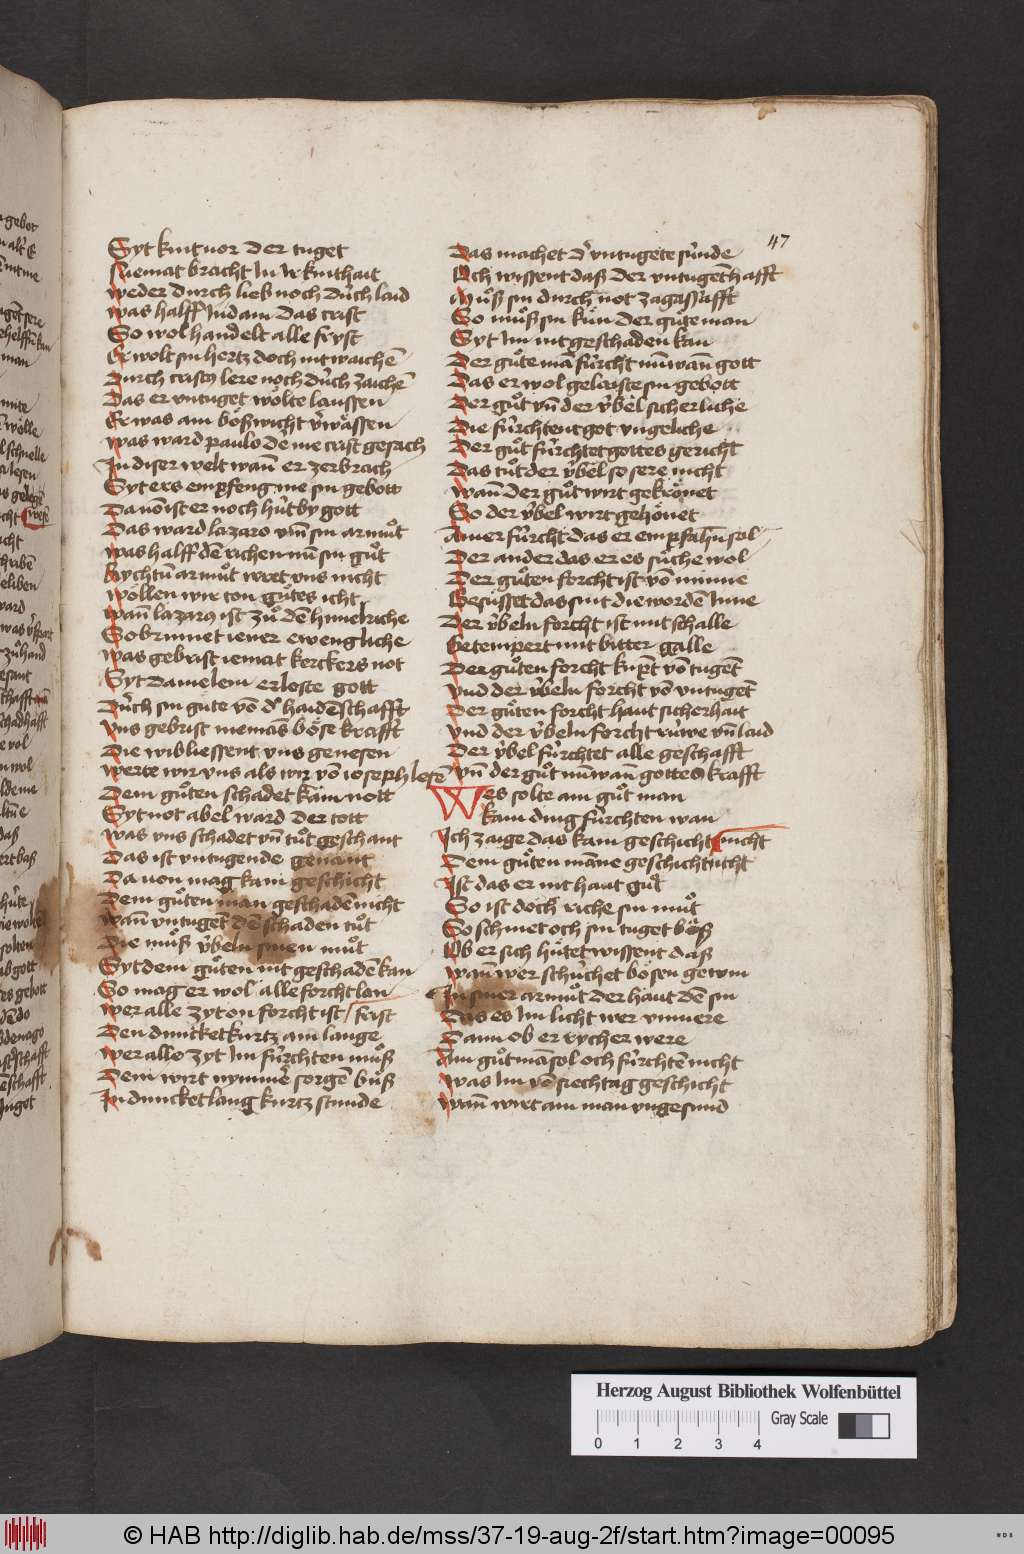 47
Syt kint vor der tuget
Niemat bracht In
weder durch lieb noch dúch laid
was halff Judam das crist
So wol handelt alle fryst
Er wolt sin hertz doch nit waichē
Durch cristꝰ lere noch dúch zaichē
Das er vntuget wölte laussen
Er was am bößwicht
was ward paulo de me crist gesach
In diser welt wan̄ er zerbrach
Syt ers empfeng me sin gebott
Da vō ist er noch hút by gott
Das ward lazaro vm̄ sin armůt
was halff dē richen nū sin gůt
Rychtū armůt irret vns nicht
wöllen wir ton gůtes icht
wan̄ lazarꝰ ist zů dē himelriche
So brinnet iener ewengliche
was gebrist iemat kerckers not
Syt Danielem erloste gott
Dúrch sin gute vō dͤ haidēschafft
vns gebrist niemās böse krafft
Die wibliessent vns genesen
werte wir vns als wir vō ioseph lesē
Dem gůten schadet kain nott
Syt not abel ward der tott
was vns schadet vn̄ tůt geschant
Das ist vntugende genant
Da von mag kain geschicht
Dem gůten man geschadē nicht
wan̄ vntuget dē schaden tůt
Die můß úbeln sinen můt
Syt dem gůten nit geschadē kan
So mag er wol alle forcht lan
wer alle zyt on forcht ist / frist
Den duncket kurtz ain lange
wer alle zyt Im fúrchten můß
Dem wirt nymmē sorgē bůß
In duncket lang kurtz stunde
Das machet dͤ vntugete súnde
Och wissent daß der vntugēthafft
Můß sin durch not zagashafft
So můß sin kün der gůte man
Syt Im nit geschaden kan
Der gůte mā fúrcht nūwan̄ gott
Das er wol gelaiste sin gebott
Der gůt vn̄ der úbel sicherliche
Die fúrchtent got vngeliche
Der gůt fúrchtet gottes gericht
Das tůt der úbel so sere nicht
wan̄ der gůt wirt gekrönet
So der úbel wirt gehönet
Ainer fúrcht das er empfahn sol
Der ander das er es sůche wol
Der gůten forcht ist vō minne
Gesússet das sint die wordē Inne
Der úbeln forcht ist mit schalle
Getempert mit bitter galle
Der gůten forcht kūpt vō tugēt
vnd der úbeln forcht vō vntugēt
Der gůten forcht haut sicherhait
vnd der úbeln forcht rúwe vn̄ laid
Der úbel fúrchtet alle geschafft
vn̄ der gůt nūwan gottes krafft
Wes solte ain gůt man
kain ding fúrchten wan
Ich zaige das kain geschicht nicht
Dem gůten māne geschicht nicht
Ist das er nit haut gůt
So ist doch riche sin můt
So schinet och sin tuget böß
Ob er sich hůtet wissent daß
wan̄ wer schúchet bösen gewin
In siner armůt der haut dē sin
Das es Im licht wer vnmere
Dann ob er rycher were
Ain gůt mā sol och fúrchtē nicht
was Im vō siechtag geschicht
wan̄ wirt ain man vngesund
Herzog August Bibliothek Wolfenbüttel
0 1 2 3 4
Gray Scale
© HAB http://diglib.hab.de/mss/37-19-aug-2f/start.htm?image=00095